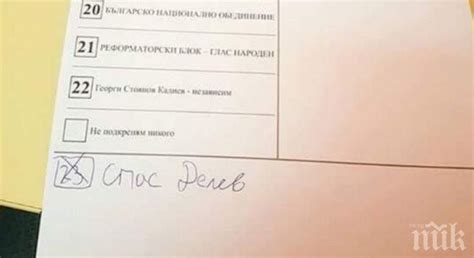 20 БЪЛГАРСКО НАЦИОНАЛНО ОБЕДИНЕНИЕ
21 РЕФОРМАТОРСКИ БЛОК – ГЛАС НАРОДЕН
22 Георги Стоянов Кадиев - независим
Не подкрепям никого
23 Спас Делев
мик